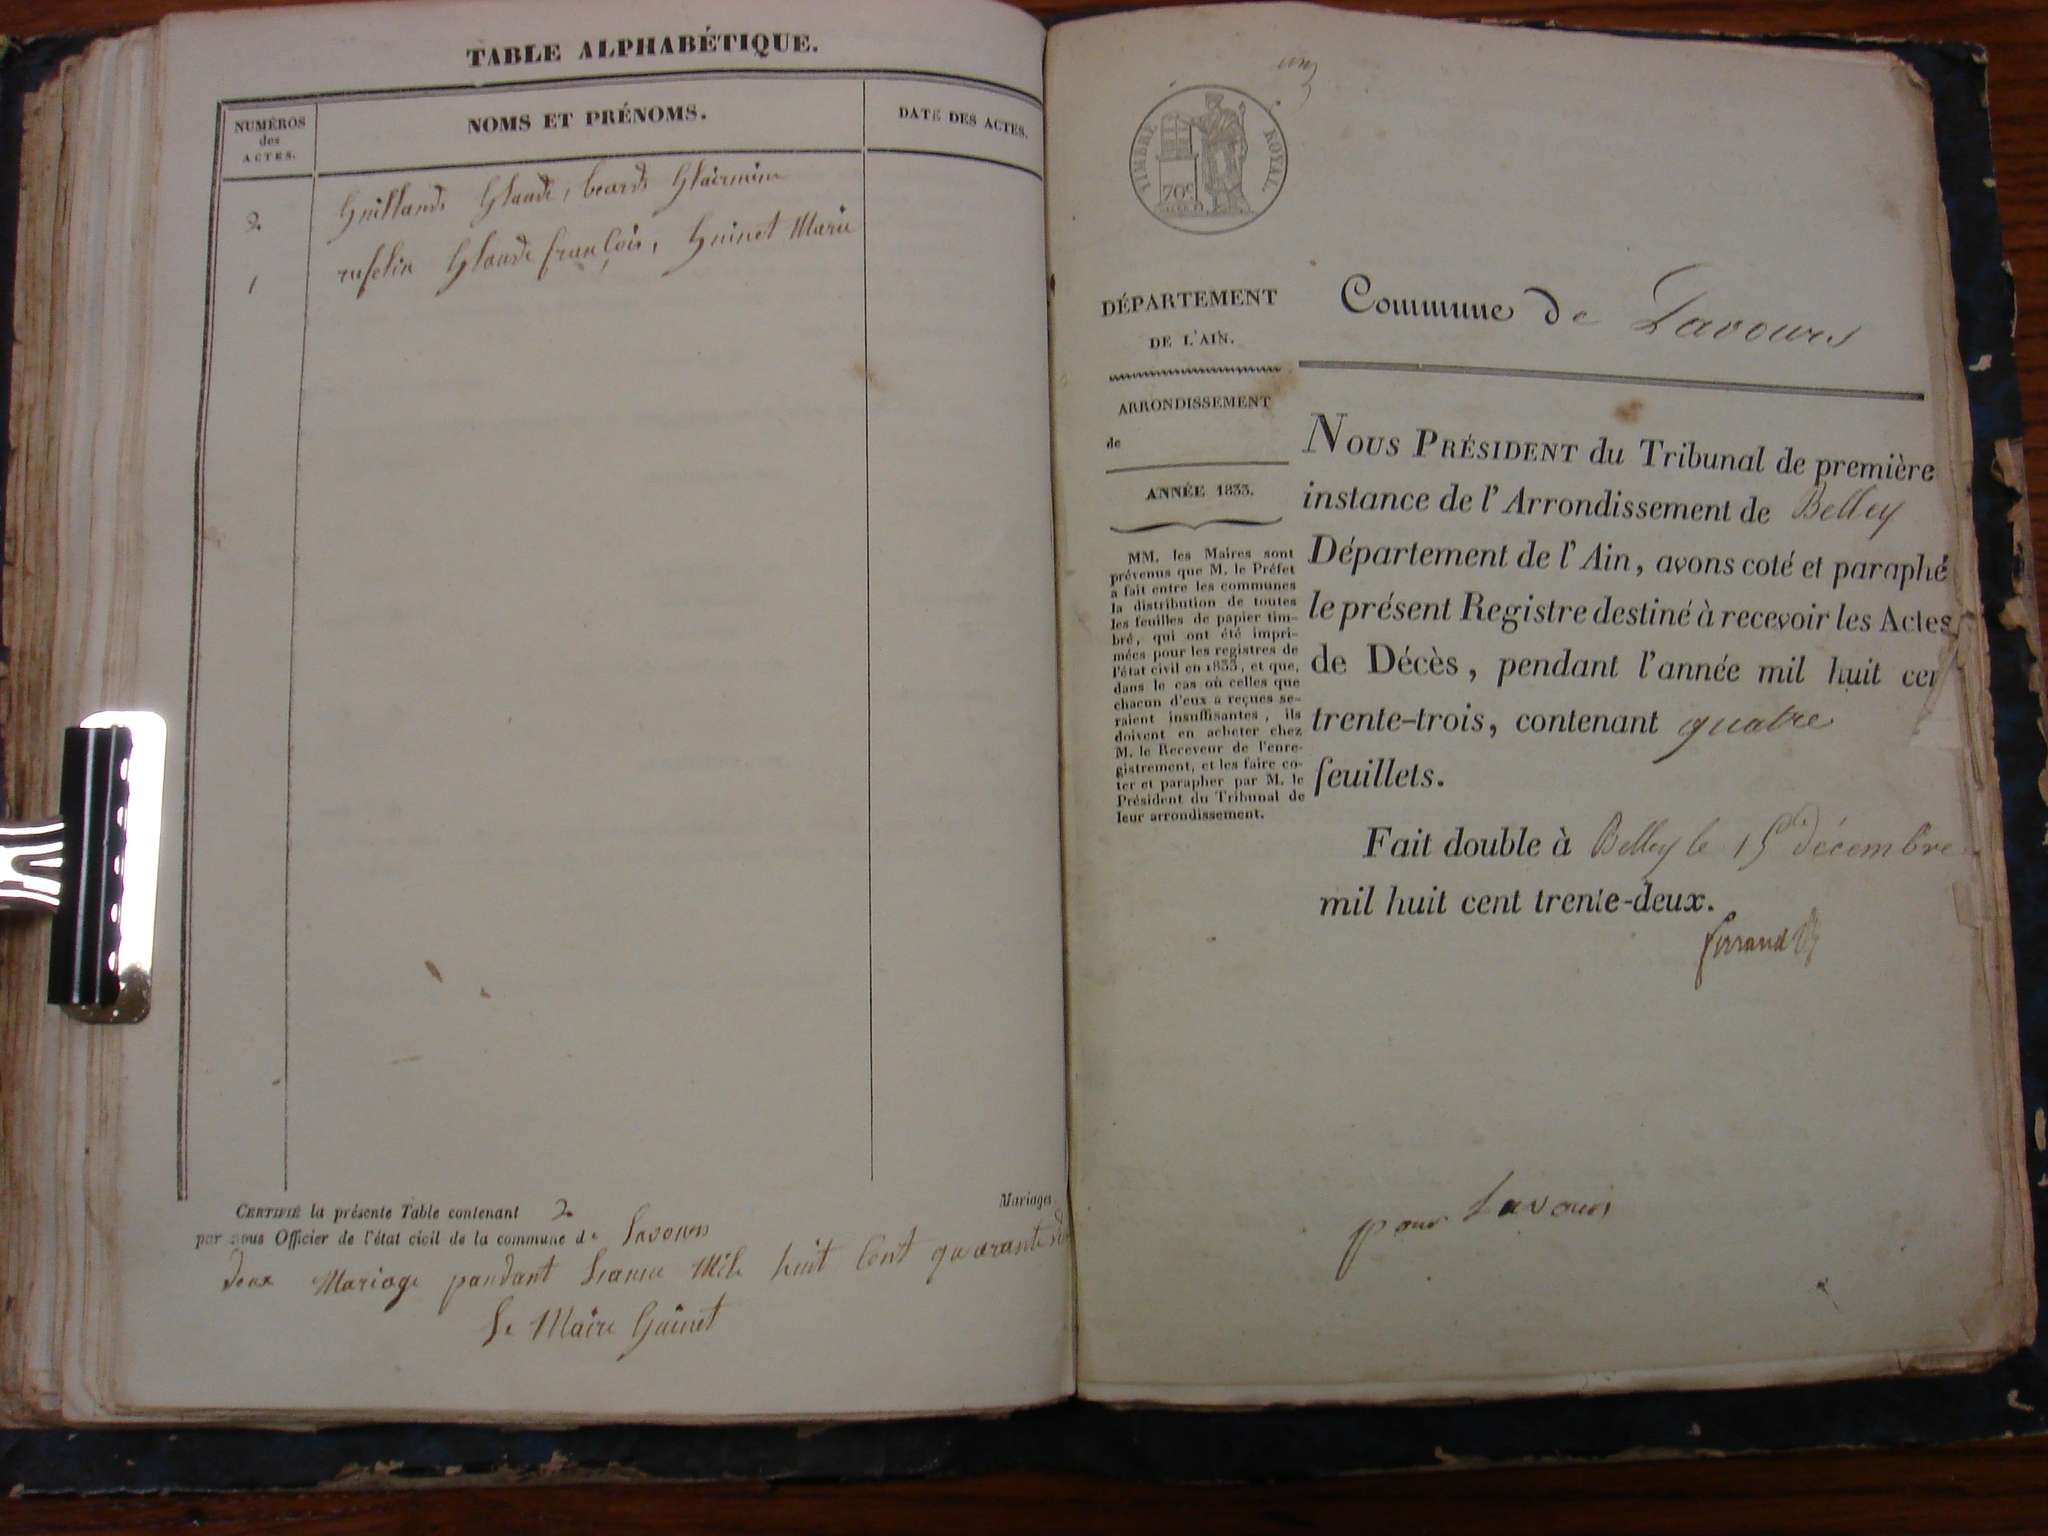 TABLE ALPHABÉTIQUE.
NUMÉROS des ACTES.
NOMS ET PRÉNOMS.
DATE DES ACTES.
2 Guilland Glaude, beard
1 Glaude françois, Guinet Marie
CERTIFIÉ la présente Table contenant 2 Mariages
par nous Officier de l'état civil de la commune de Lavours
deux Mariage pandant Lianu Mil huit Cent quarante
Le Maire Guinet
un
TIMBRE ROYAL.
70c
DÉPARTEMENT
DE L'AIN.
ARRONDISSEMENT
de
ANNÉE 1833.
MM. les Maires sont
prévenus que M. le Préfet
a fait entre les communes
la distribution de toutes
les feuilles de papier tim-
bré, qui ont été impri-
mées pour les registres de
l'état civil en 1833, et que,
dans le cas où celles que
chacun d'eux a reçues se-
raient insuffisantes, ils
doivent en acheter chez
M. le Receveur de l'enre-
gistrement, et les faire co-
ter et parapher par M. le
Président du Tribunal de
leur arrondissement.
Commune de Lavours
NOUS PRÉSIDENT du Tribunal de première
instance de l'Arrondissement de Belley
Département de l'Ain, avons coté et paraphé
le présent Registre destiné à recevoir les Actes
de Décès, pendant l'année mil huit cen
trente-trois, contenant quatre
feuillets.
Fait double à Belley le 15 décembre
mil huit cent trente-deux.
Ferrand
pour Lavours